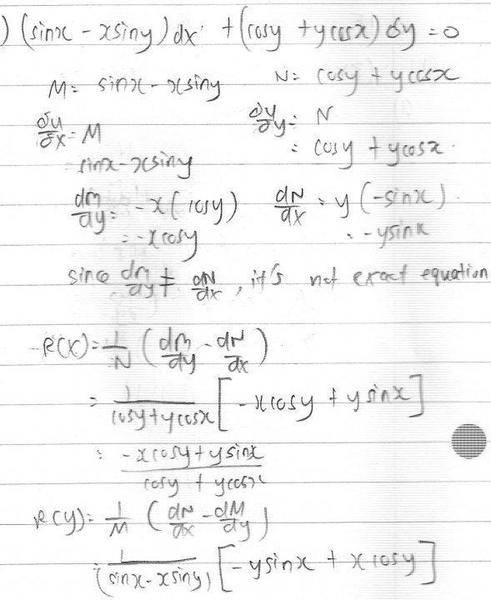 ) (sinx - xsiny) dx + (cosy + ycosx) dy = 0
M = sinx - xsiny N = cosy + ycosx
∂u/∂x = M ∂u/∂y = N
= sinx - xsiny = cosy + ycosx.
dm/dy = -x(cosy) dN/dx = y(-sinx)
= -xcosy = -ysinx
since dm/dy ≠ dN/dx, it's not exact equation
R(x) = 1/N (dm/dy - dN/dx)
= 1/(cosy + ycosx) [-xcosy + ysinx]
= (-xcosy + ysinx)/(cosy + ycosx)
R(y) = 1/M (dN/dx - dM/dy)
= 1/(sinx - xsiny) [-ysinx + xcosy]